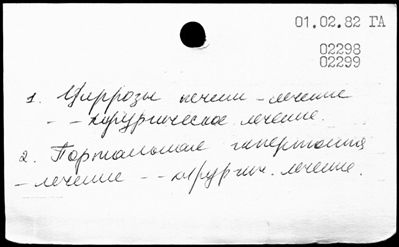 01.02.82 ГА
02298
02299
1. Циррозы печени - лечение
- - хирургическое лечение.
2. Портальная гипертония
- лечение - - хирургич. лечение.